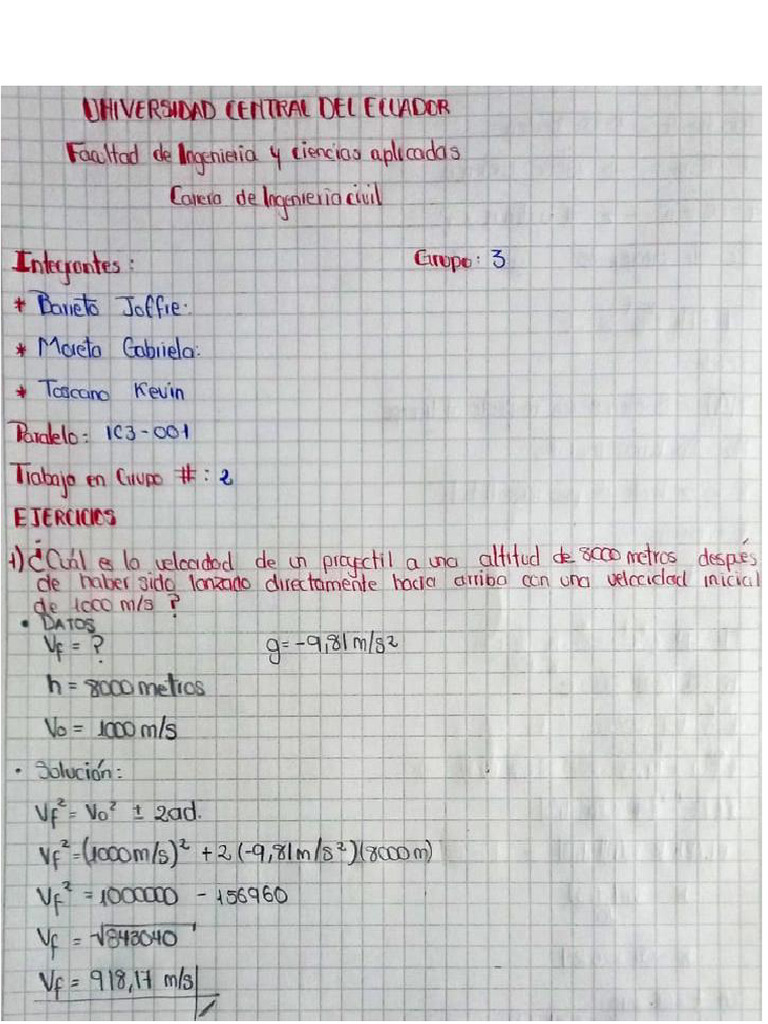 UNIVERSIDAD CENTRAL DEL ECUADOR
Facultad de Ingenieria y ciencias aplicadas
Carrera de Ingenieria civil
Integrantes: Grupo: 3
* Barreto Joffre.
* Moreta Gabriela.
* Toscano Kevin
Paralelo: IC3-001
Trabajo en Grupo #: 2
EJERCICIOS
1) ¿Cuál es la velocidad de un proyectil a una altitud de 8000 metros después
de haber sido lanzado directamente hacia arriba con una velocidad inicial
de 1000 m/s ?
• DATOS
Vf = ? g = -9,81 m/s2
h = 8000 metros
Vo = 1000 m/s
• Solución:
Vf² = Vo² ± 2ad.
Vf² = (1000m/s)² + 2 (-9,81m/s²)(8000m)
Vf² = 1000000 - 156960
Vf = √843040
Vf = 918,17 m/s